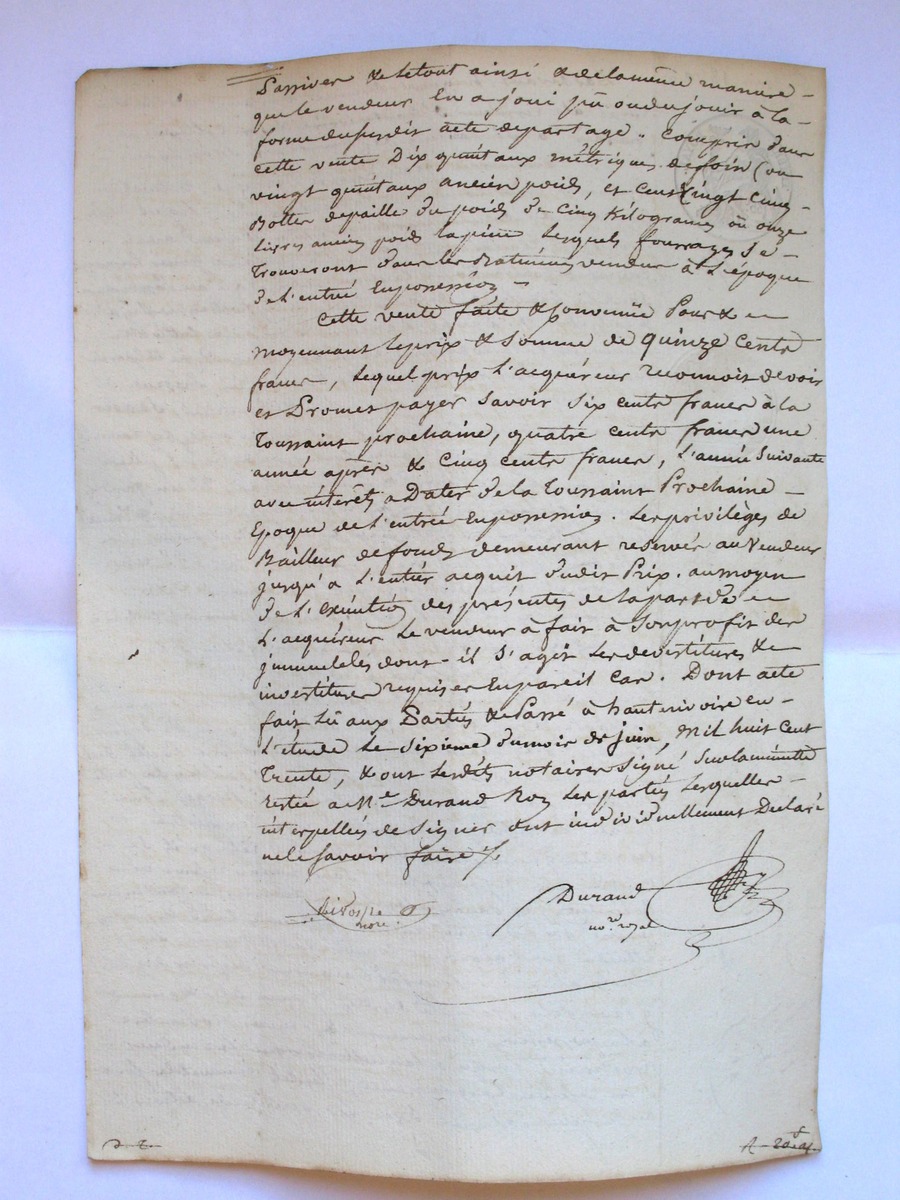 passives & le tout ainsi & de la meme maniere -
que le vendeur En a joui pû ou du jouir à la -
forme du susdit acte de partage. Compris dans
cette vente Dix quintaux métriques de foin (ou
vingt quintaux ancien poids, et cent vingt cinq -
Bottes de paille du poids de cinq Kilogrames ou onze
livres ancien poids la piece lesquels fourrages se -
trouveront dans les Batimens vendus à L'époque
de L'entrée En possession -
Cette vente faite & convenue Pour & -
moyennant le prix & Somme de quinze cents
francs, lequel prix L'acquéreur reconnoit devoir
et Promet payer Savoir Six cents francs à la
Toussaint prochaine, quatre cents francs une
année après & cinq cents francs, L'année Suivante
avec intérêts a Dater de la Toussaint Prochaine -
Epoque de L'entrée En possession. Les privilèges de
Bailleur de fonds demeurant reservés au Vendeur
jusqu'a L'entier acquit dudit Prix. au moyen
de L'exécution des présentes de la part de -
L'acquéreur Le vendeur à fait à Son profit des
immeubles dont il S'agit Les devestitures &
investitures requises En pareil Cas. Dont acte
fait Lû aux Parties & Passé à hauterivoire en
L'étude Le Sixieme du mois de juin, mil huit Cent
Trente, & ont Lesdits notaires Signé Sur la minutte
restée a Me Durand Non Les parties Lesquelles -
interpellées de Signer ont individuellement Declaré
ne le Savoir faire ./.
Durand
nore. royal
nore.